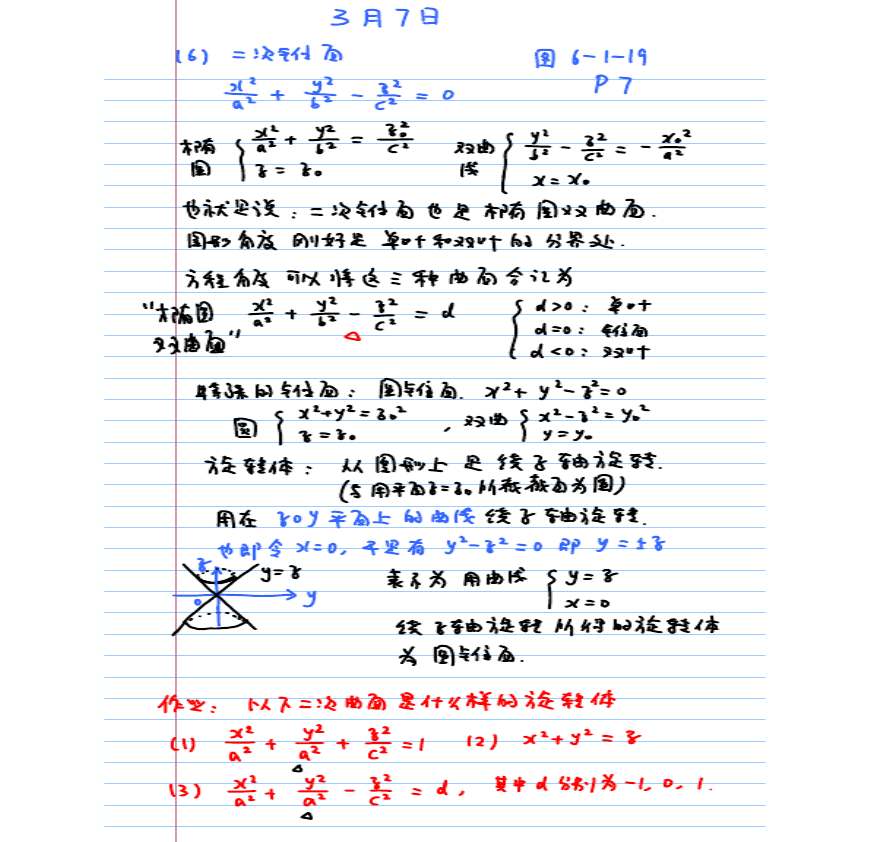 3月7日
(6) 二次锥面 图 6-1-19
P7
x²/a² + y²/b² - z²/c² = 0
椭圆 { x²/a² + y²/b² = z₀²/c² z = z₀ 双曲线 { y²/b² - z²/c² = - x₀²/a² x = x₀
也就是说：二次锥面也是椭圆双曲面.
图形角度刚好是单叶和双叶的分界处.
方程角度可以将这三种曲面合记为
"椭圆双曲面" x²/a² + y²/b² - z²/c² = d { d>0: 单叶 d=0: 锥面 d<0: 双叶
特殊的锥面：圆锥面. x² + y² - z² = 0
圆 { x²+y² = z₀² z = z₀ , 双曲 { x² - z² = y₀² y = y₀
旋转体：从图形上是绕z轴旋转.
(与用平面z=z₀所截截面为圆)
用在zoy平面上的曲线绕z轴旋转.
也即令x=0, 于是有 y²-z²=0 即 y=±z
z y=z o y
表示为用曲线 { y = z x = 0
绕z轴旋转所得的旋转体
为圆锥面.
作业：以下二次曲面是什么样的旋转体
(1) x²/a² + y²/a² + z²/c² = 1 (2) x² + y² = z
(3) x²/a² + y²/a² - z²/c² = d, 其中d分别为-1, 0, 1.